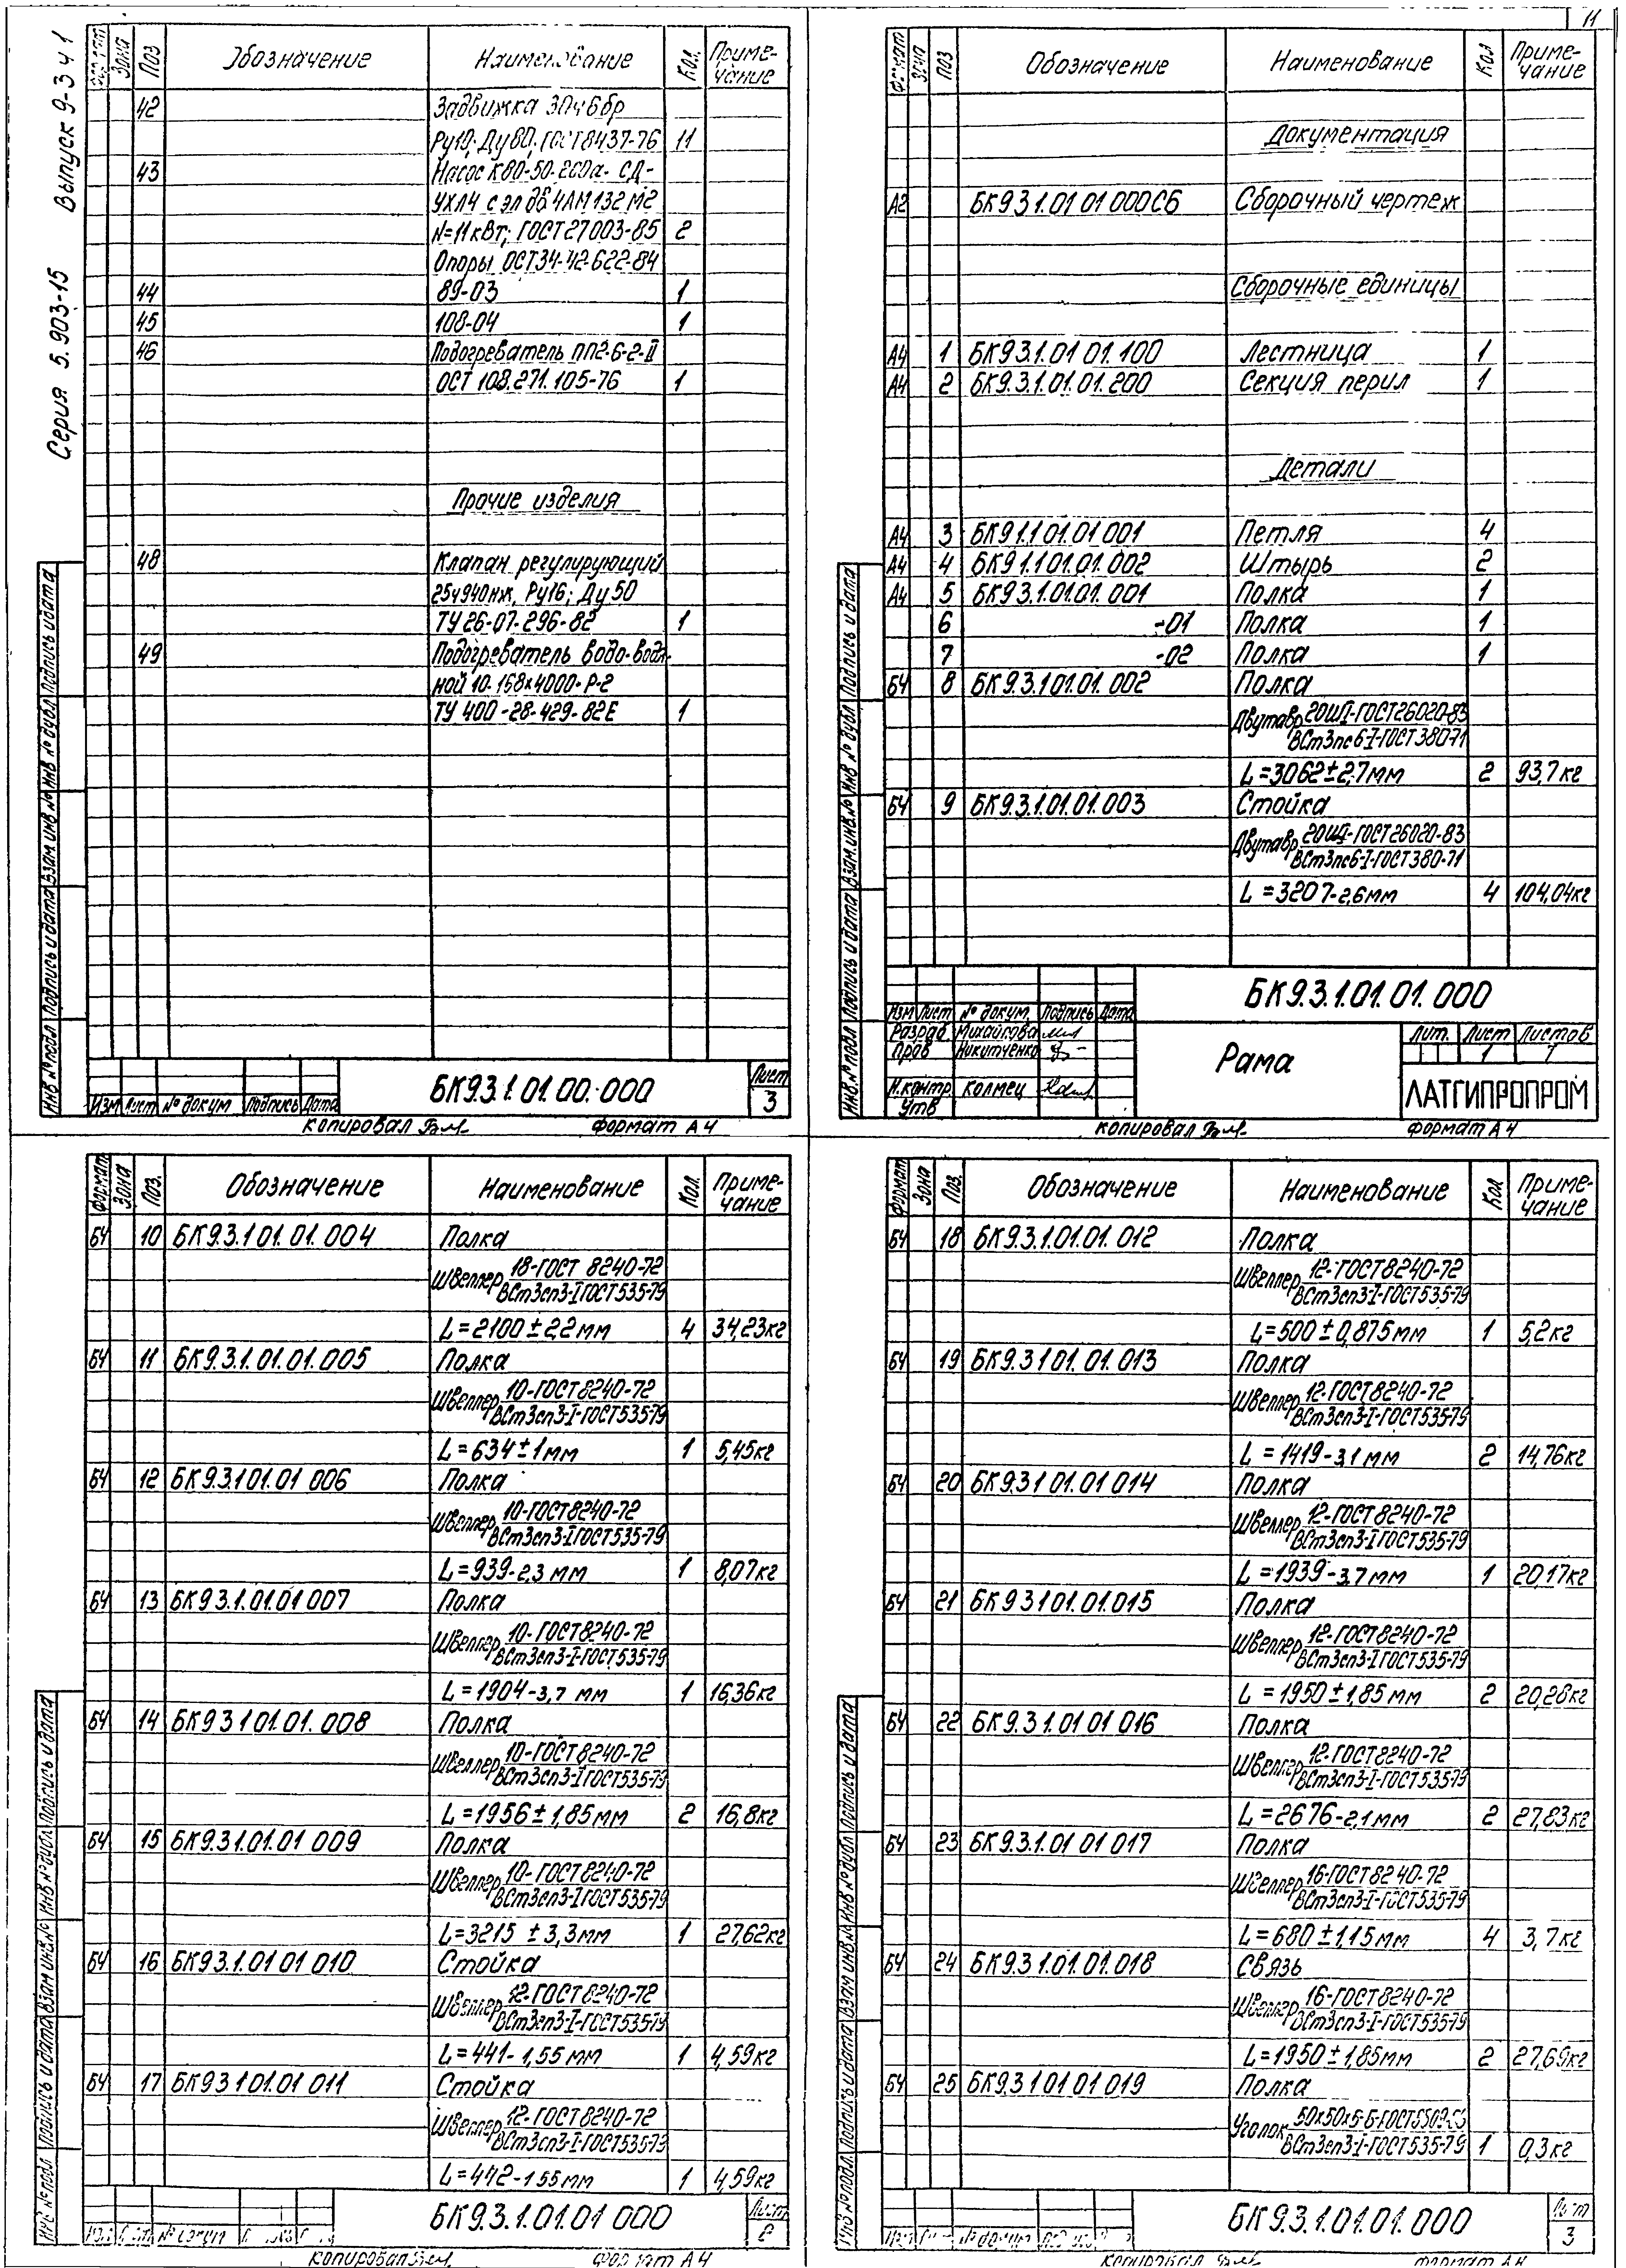 11
Серия 5.903-15 Выпуск 9-3 ч 1
Формат Зона Поз Обозначение Наименование Кол. Приме-чание
42 Задвижка 30ч6бр
Ру10; Ду80; ГОСТ8437-76 11
43 Насос К80-50-200а-СД-
УХЛ4 с эл дв 4АМ132М2
N=11кВт; ГОСТ27003-85 2
Опоры ОСТ34-42-622-84
44 89-03 1
45 108-04 1
46 Подогреватель ПП2-6-2-II
ОСТ 108.271.105-76 1
Прочие изделия
48 Клапан регулирующий
25ч940нж, Ру16; Ду50
ТУ26-07-296-82 1
49 Подогреватель водо-водя-
ной 10-168х4000-Р-2
ТУ 400-28-429-82Е 1
Инв № подл Подпись и дата Взам инв № Инв № дубл Подпись и дата
Изм Лист № докум Подпись Дата
БК93.1.01.00.000
Лист 3
Копировал
Формат А4
Формат Зона Поз Обозначение Наименование Кол Приме-чание
Документация
А2 БК9 3 1.01 01 000СБ Сборочный чертеж
Сборочные единицы
А4 1 БК9 3.1.01 01.100 Лестница 1
А4 2 БК9.3.1.01.01.200 Секция перил 1
Детали
А4 3 БК9 1.1 01.01 001 Петля 4
А4 4 БК9 1.1 01.01.002 Штырь 2
А4 5 БК9 3.1.01.01.001 Полка 1
6 -01 Полка 1
7 -02 Полка 1
БЧ 8 БК9.3.1 01.01.002 Полка
Двутавр 20Ш1-ГОСТ26020-83
ВСт3пс6-I-ГОСТ380-71
L=3062±2,7мм 2 93,7кг
БЧ 9 БК9.3.1.01.01.003 Стойка
Двутавр 20Ш1-ГОСТ26020-83
ВСт3пс6-I-ГОСТ380-71
L=3207-2,6мм 4 104,04кг
Инв.№ подл Подпись и дата Взам.инв.№ Инв № дубл Подпись и дата
БК9.3.1.01.01.000
Изм Лист № докум. Подпись Дата
Разраб Михайлова
Пров Никитченко
Н.контр Колмец
Утв
Рама
Лит. Лист Листов
1 7
ЛАТГИПРОПРОМ
Копировал
Формат А4
Формат Зона Поз. Обозначение Наименование Кол. Приме-чание
БЧ 10 БК9.3.1 01.01.004 Полка
Швеллер 18-ГОСТ 8240-72
ВСт3сп3-I ГОСТ535-79
L=2100±2,2мм 4 34,23кг
БЧ 11 БК9.3.1.01.01.005 Полка
Швеллер 10-ГОСТ8240-72
ВСт3сп3-I-ГОСТ535-79
L=634±1мм 1 5,45кг
БЧ 12 БК9.3.1 01.01 006 Полка
Швеллер 10-ГОСТ8240-72
ВСт3сп3-I ГОСТ535-79
L=939-2,3 мм 1 8,07кг
БЧ 13 БК9 3.1.01.01 007 Полка
Швеллер 10-ГОСТ8240-72
ВСт3сп3-I-ГОСТ535-79
L=1904-3,7 мм 1 16,36кг
БЧ 14 БК9 3 1 01.01.008 Полка
Швеллер 10-ГОСТ8240-72
ВСт3сп3-I ГОСТ535-79
L=1956±1,85мм 2 16,8кг
БЧ 15 БК9.3 1.01.01 009 Полка
Швеллер 10-ГОСТ8240-72
ВСт3сп3-I-ГОСТ535-79
L=3215 ±3,3мм 1 27,62кг
БЧ 16 БК9 3.1.01 01 010 Стойка
Швеллер 12-ГОСТ8240-72
ВСт3сп3-I-ГОСТ535-79
L=441-1,55мм 1 4,59кг
БЧ 17 БК9 3 1 01.01 011 Стойка
Швеллер 12-ГОСТ8240-72
ВСт3сп3-I-ГОСТ535-79
L=442-1 55мм 1 4,59кг
Инв № подл Подпись и дата Взам инв.№ Инв № дубл Подпись и дата
БК9.3.1.01.01 000
Лист 2
Копировал
Формат А4
Формат Зона Поз. Обозначение Наименование Кол Приме-чание
БЧ 18 БК9 3.1.01.01.012 Полка
Швеллер 12-ГОСТ8240-72
ВСт3сп3-I-ГОСТ535-79
L=500±0,875мм 1 5,2кг
БЧ 19 БК9.3 1 01.01.013 Полка
Швеллер 12-ГОСТ8240-72
ВСт3сп3-I-ГОСТ535-79
L=1419-3,1 мм 2 14,76кг
БЧ 20 БК9.3 1 01.01 014 Полка
Швеллер 12-ГОСТ8240-72
ВСт3сп3-I-ГОСТ535-79
L=1939-3,7мм 1 20,17кг
БЧ 21 БК9 3 1 01.01.015 Полка
Швеллер 12-ГОСТ8240-72
ВСт3сп3-I ГОСТ535-79
L=1950±1,85мм 2 20,28кг
БЧ 22 БК9.3 1.01 01 016 Полка
Швеллер 12-ГОСТ8240-72
ВСт3сп3-I-ГОСТ535-79
L=2676-2,1мм 2 27,83кг
БЧ 23 БК9.3.1.01 01 017 Полка
Швеллер 16-ГОСТ8240-72
ВСт3сп3-I-ГОСТ535-79
L=680±1,15мм 4 3,7кг
БЧ 24 БК9.3 1.01.01.018 Связь
Швеллер 16-ГОСТ8240-72
ВСт3сп3-I-ГОСТ535-79
L=1950±1,85мм 2 27,69кг
БЧ 25 БК9.3 1 01 01 019 Полка
Уголок 50х50х5-Б-ГОСТ8509-
ВСт3сп3-I-ГОСТ535-79 1 0,3кг
Инв № подл Подпись и дата Взам инв.№ Инв № дубл Подпись и дата
БК9.3.1.01.01.000
Лист 3
Копировал
Формат А4